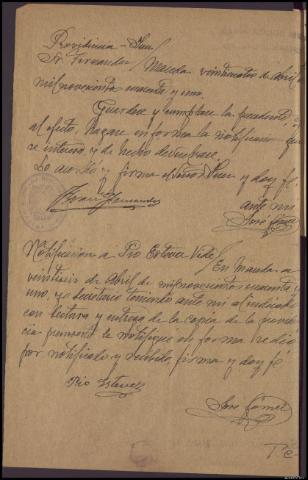 Providencia = Juez
Sr. Fernandez / Maceda veinticuatro de Abril
mil novecientos cuarenta y uno.
Guardese y cumplase la precedente y
al efecto, hagase en forma la notificacion que
se interesa, y de hecho devuelvase.
Lo acordó y firma el Señor Juez y doy fé
ante mi
Fernandez
José Gómez
Notificación a Pio Estevez Vide / En Maceda a
veintiseis de Abril de mil novecientos cuarenta y
uno, yo Secretario teniendo ante mi al indicado
con lectura y entrega de la copia de la provi
dencia precedente le notifiqué en forma
por notificado y recibido firma y doy fé
Pio Estevez
José Gómez